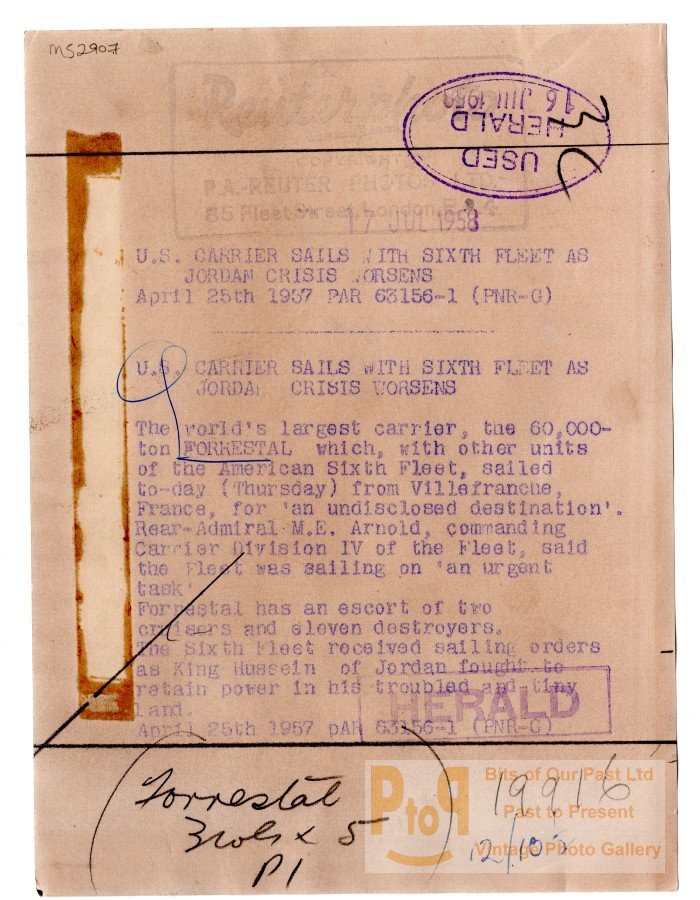 MS2907
Reuterphoto
COPYRIGHT
P.A.-REUTER PHOTOS LTD.
85 Fleet Street, London, E.C.4
USED
HERALD
16 JUL 1958
17 JUL 1958
U.S. CARRIER SAILS WITH SIXTH FLEET AS
JORDAN CRISIS WORSENS
April 25th 1957 PAR 63156-1 (PNR-G)
U.S. CARRIER SAILS WITH SIXTH FLEET AS
JORDAN CRISIS WORSENS
The world's largest carrier, the 60,000-
ton FORRESTAL which, with other units
of the American Sixth Fleet, sailed
to-day (Thursday) from Villefranche,
France, for 'an undisclosed destination'.
Rear-Admiral M.E. Arnold, commanding
Carrier Division IV of the Fleet, said
the Fleet was sailing on 'an urgent
task'
Forrestal has an escort of two
cruisers and eleven destroyers.
The Sixth Fleet received sailing orders
as King Hussein of Jordan fought to
retain power in his troubled and tiny
land.
HERALD
April 25th 1957 pAR 63156-1 (PNR-G)
Forrestal
3 cols x 5
P1
19916
PtoP
Bits of Our Past Ltd
Past to Present
Vintage Photo Gallery